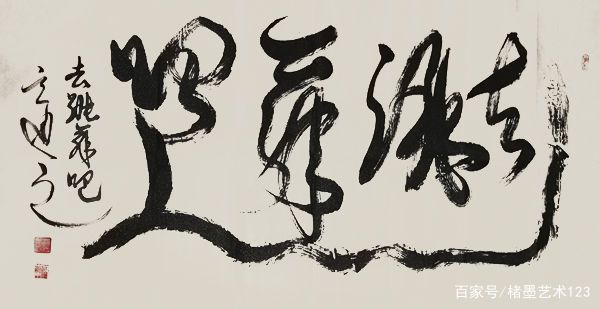 去跳舞吧
去跳舞吧
百家号/楮墨艺术123